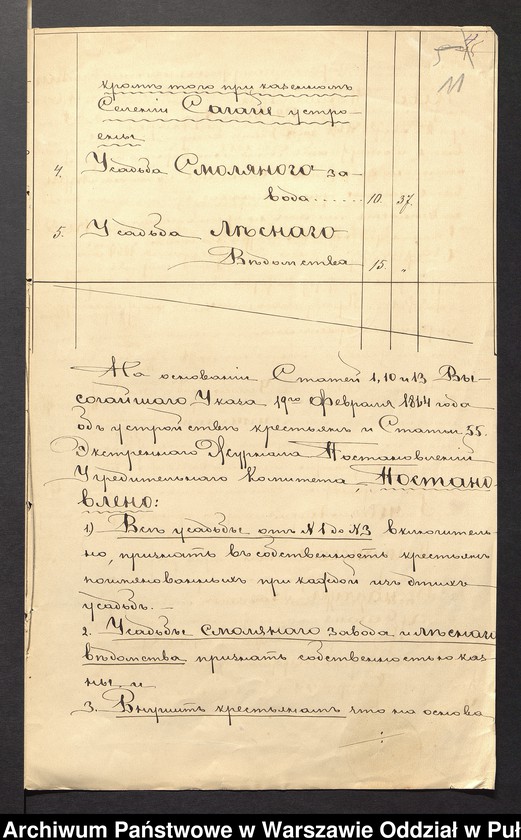 11
кромѣ того при казенномъ
Селенiи Сагайе устро-
ены
4. Усадьба Смоляного за-
вода...... 10. 37.
5. Усадьба Лѣснаго
Вѣдомства 15 "
На основанiи Статей 1, 10 и 13 Вы-
сочайшаго Указа 19го Февраля 1864 года
объ устройствѣ крестьянъ и Статьи 55.
Экстреннаго Журнала Постановленiй
Учредительнаго Комитета, Постано-
влено:
1) Всѣ усадьбы отъ N1 до N3 включитель-
но, признать въ собственность крестьянъ
поименованныхъ при каждой изъ этихъ
усадьбъ. —
2. Усадьбы Смолянаго завода и лѣснаго
вѣдомства признать собственностью каз-
ны и
3. Внушить крестьянамъ что на основа
Archiwum Państwowe w Warszawie Oddział w Puł